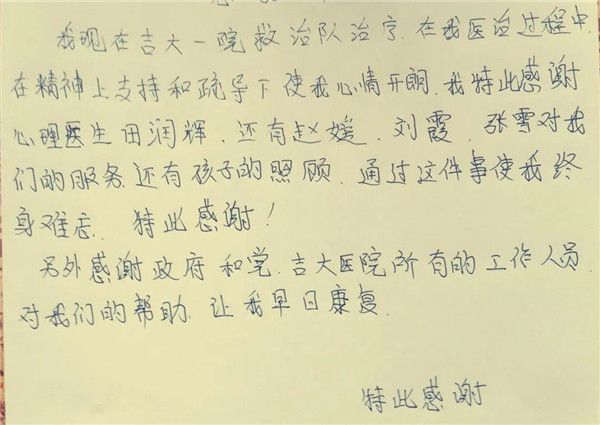 我现在吉大一院救治队治疗.在我医治过程中.
在精神上支持和疏导下使我心情开朗.我特此感谢
心理医生田润辉.还有赵媛.刘霞 张雪对我
们的服务.还有孩子的照顾.通过这件事使我终
身难忘. 特此感谢!
另外感谢政府和党.吉大医院所有的工作人员.
对我们的帮助.让我早日康复.
特此感谢